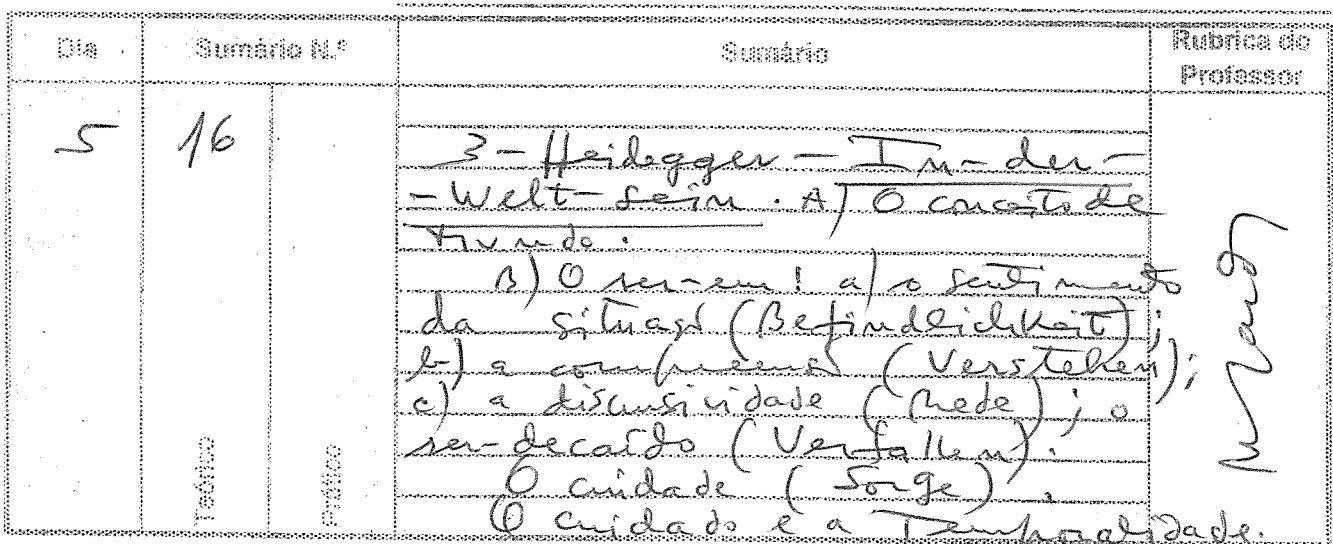 Dia
Sumário N.º
Sumário
Rubrica do
Professor
5
16
3 - Heidegger - In-der-
-Welt-sein. A) O conceito de
mundo.
B) O ser-em: a) o sentimento
da situação (Befindlichkeit);
b) a compreensão (Verstehen);
c) a discursividade (Rede); o
ser-decaído (Verfallen).
O cuidado (Sorge).
O cuidado e a Temporalidade.
Teórico
Prático